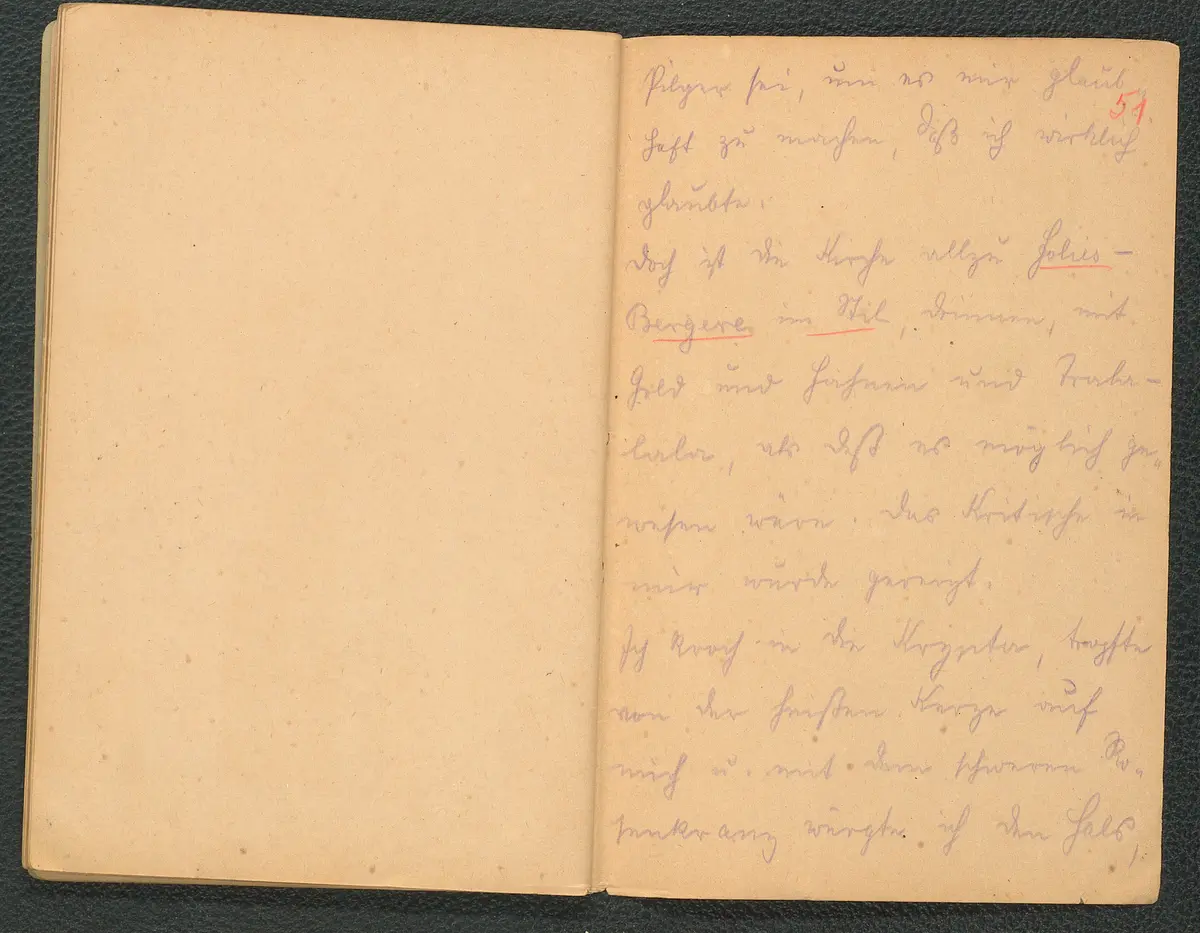 Pilger sei, um es mir glaub-
51.
haft zu machen, daß ich wirklich
glaubte.
Doch ist die Kirche allzu Folies-
Bergere im Stil, drinnen, mit
Gold und Fahnen und Trala-
lala, als daß es möglich ge-
wesen wäre. Das Kritische in
mir wurde gereizt.
Ich kroch in die Krypta, tropfte
von der heißen Kerze auf
mich u. mit dem schweren Ro-
senkranz würgte ich den Hals,